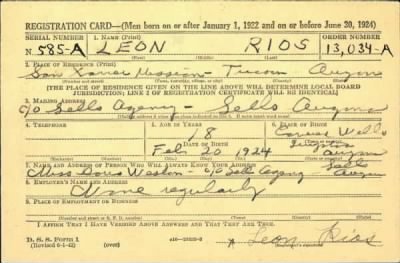 REGISTRATION CARD—(Men born on or after January 1, 1922 and on or before June 30, 1924)
SERIAL NUMBER 1. NAME (Print) ORDER NUMBER
N 585-A LEON RIOS 13,034-A
(First) (Middle) (Last)
2. PLACE OF RESIDENCE (Print)
San Xavier Mission - Tucson Arizona
[THE PLACE OF RESIDENCE GIVEN ON THE LINE ABOVE WILL DETERMINE LOCAL BOARD
JURISDICTION; LINE 2 OF REGISTRATION CERTIFICATE WILL BE IDENTICAL]
3. MAILING ADDRESS
c/o Sells Agency - Sells Arizona
4. TELEPHONE 5. AGE IN YEARS 6. PLACE OF BIRTH
18
DATE OF BIRTH
Feb 20 1924 Arizona
7. NAME AND ADDRESS OF PERSON WHO WILL ALWAYS KNOW YOUR ADDRESS
Miss Doris Weston - c/o Sells Agency Sells
8. EMPLOYER'S NAME AND ADDRESS
None regularly
9. PLACE OF EMPLOYMENT OR BUSINESS
I AFFIRM THAT I HAVE VERIFIED ABOVE ANSWERS AND THAT THEY ARE TRUE.
D. S. S. Form 1
(Revised 6-1-42)
Leon Rios